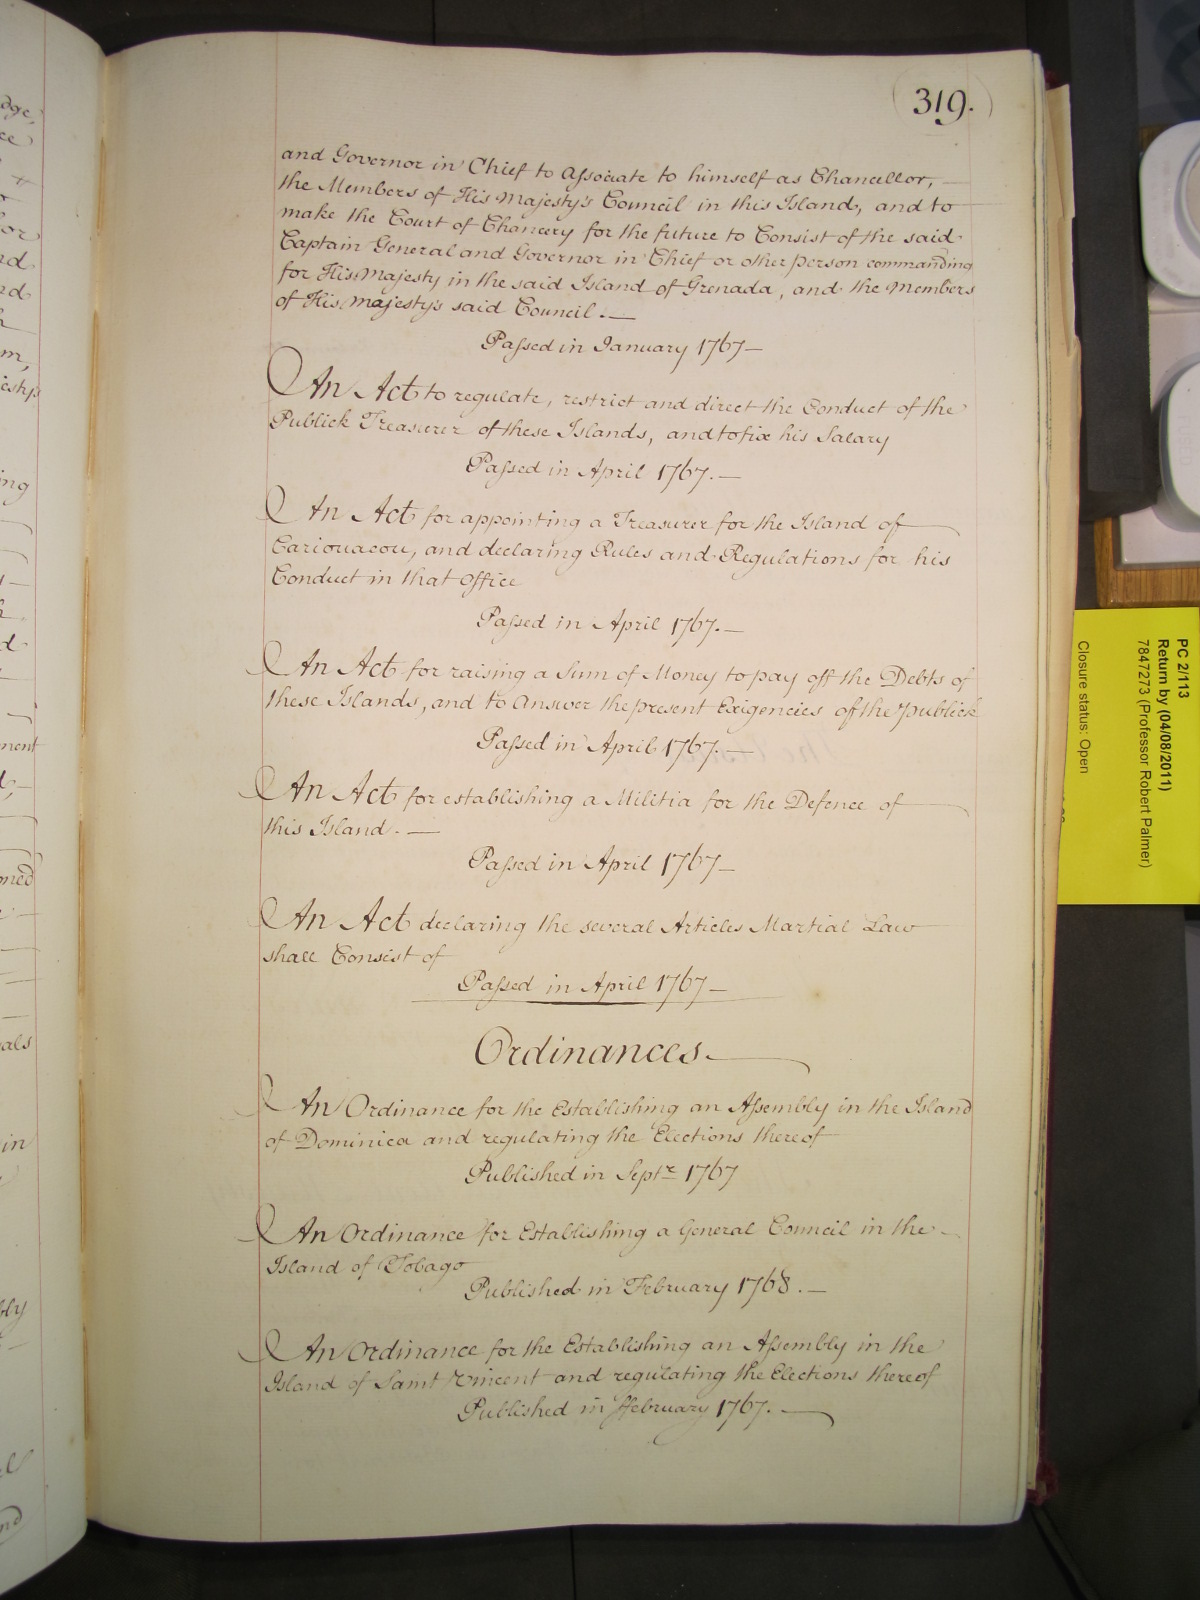 319.
and Governor in Chief to Associate to himself as Chancellor,
the Members of His Majesty's Council in this Island, and to
make the Court of Chancery for the future to Consist of the said
Captain General and Governor in Chief or other person commanding
for His Majesty in the said Island of Grenada, and the Members
of His Majesty's said Council.
Passed in January 1767
An Act to regulate, restrict and direct the Conduct of the
Publick Treasurer of these Islands, and to fix his Salary
Passed in April 1767.
An Act for appointing a Treasurer for the Island of
Cariouacou, and declaring Rules and Regulations for his
Conduct in that Office
Passed in April 1767.
An Act for raising a Sum of Money to pay off the Debts of
these Islands, and to Answer the present Exigencies of the Publick
Passed in April 1767.
An Act for establishing a Militia for the Defence of
this Island.
Passed in April 1767
An Act declaring the several Articles Martial Law
shall Consist of
Passed in April 1767
Ordinances
An Ordinance for the Establishing an Assembly in the Island
of Dominica and regulating the Elections thereof
Published in Septr 1767
An Ordinance for Establishing a General Council in the
Island of Tobago
Published in February 1768.
An Ordinance for the Establishing an Assembly in the
Island of Saint Vincent and regulating the Elections thereof
Published in ffebruary 1767.
PC 2/113
Return by (04/08/2011)
7847273 (Professor Robert Palmer)
Closure status: Open